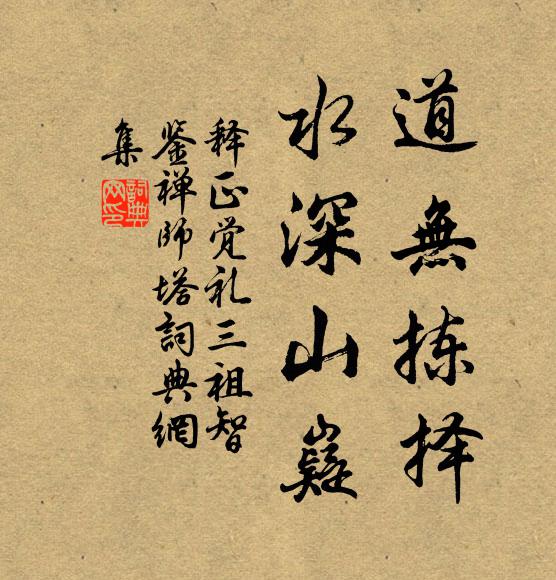 道無拣择
水深山嶷
释正觉礼三祖智
鉴禅师塔詞典網
集
詞典网印